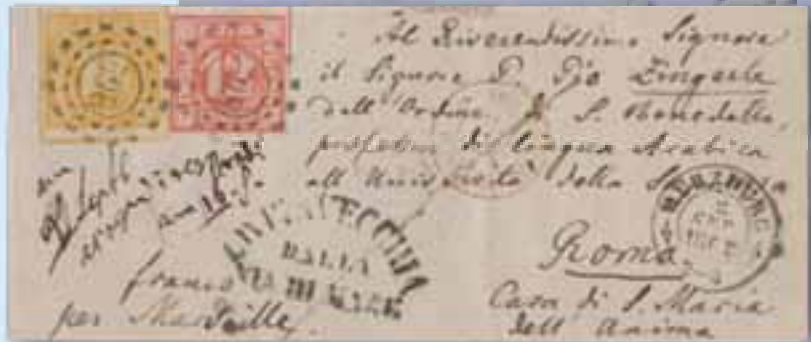 Al Riverendissimo Signore
il Signore P. Pio Zingerle
dell'Ordine di S. Benedetto,
professore di lingua Arabica
all Università della
Roma.
Casa di S. Maria
dell Anima
franco
per Marseille
12
CIVITAVECCHIA
DALLA
VIA DI MARE
SEP